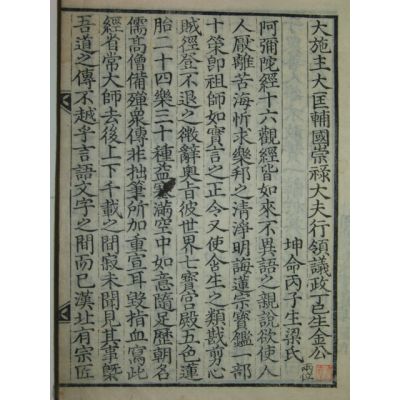 大施主大匡輔國崇祿大夫行領議政丁巳生金公
坤命丙子生梁氏 兩位
阿彌陀經十六觀經皆如來不異語之親說欲使人
人厭離苦海忻求樂邦之清淨明誨蓮宗寶鑑一部
十策即祖師如實言之正令又使含生之類戡剪心
賊徑登不退之徵辭奧旨彼世界七寶宮殿五色蓮
胎二十四樂三十種益滿空中如意隨足歷朝名
儒高僧備殫衆傳非拙筆所加重宣耳毁指血寫此
經省常大師去後上下千載之間寂未聞見其事槩
吾道之傳不越乎言語文字之間而已漢址有宗匠